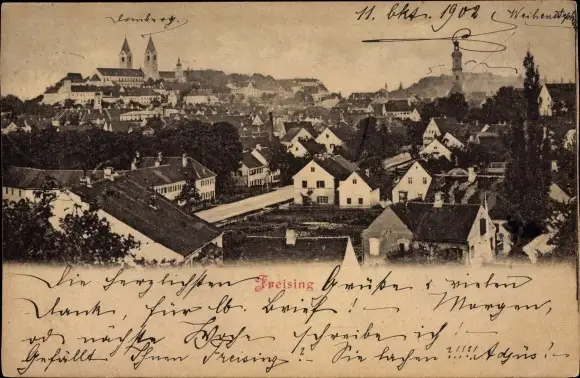 Domberg.
11. Okt. 1902
Weihenstph.
Freising
Die herzlichsten Grüße & vielen
Dank, für lb. Brief! — Morgen,
od. nächste Woche schreibe ich! —
Gefällt Ihnen Freising? — Sie lachen?!!!! Adjüs! —